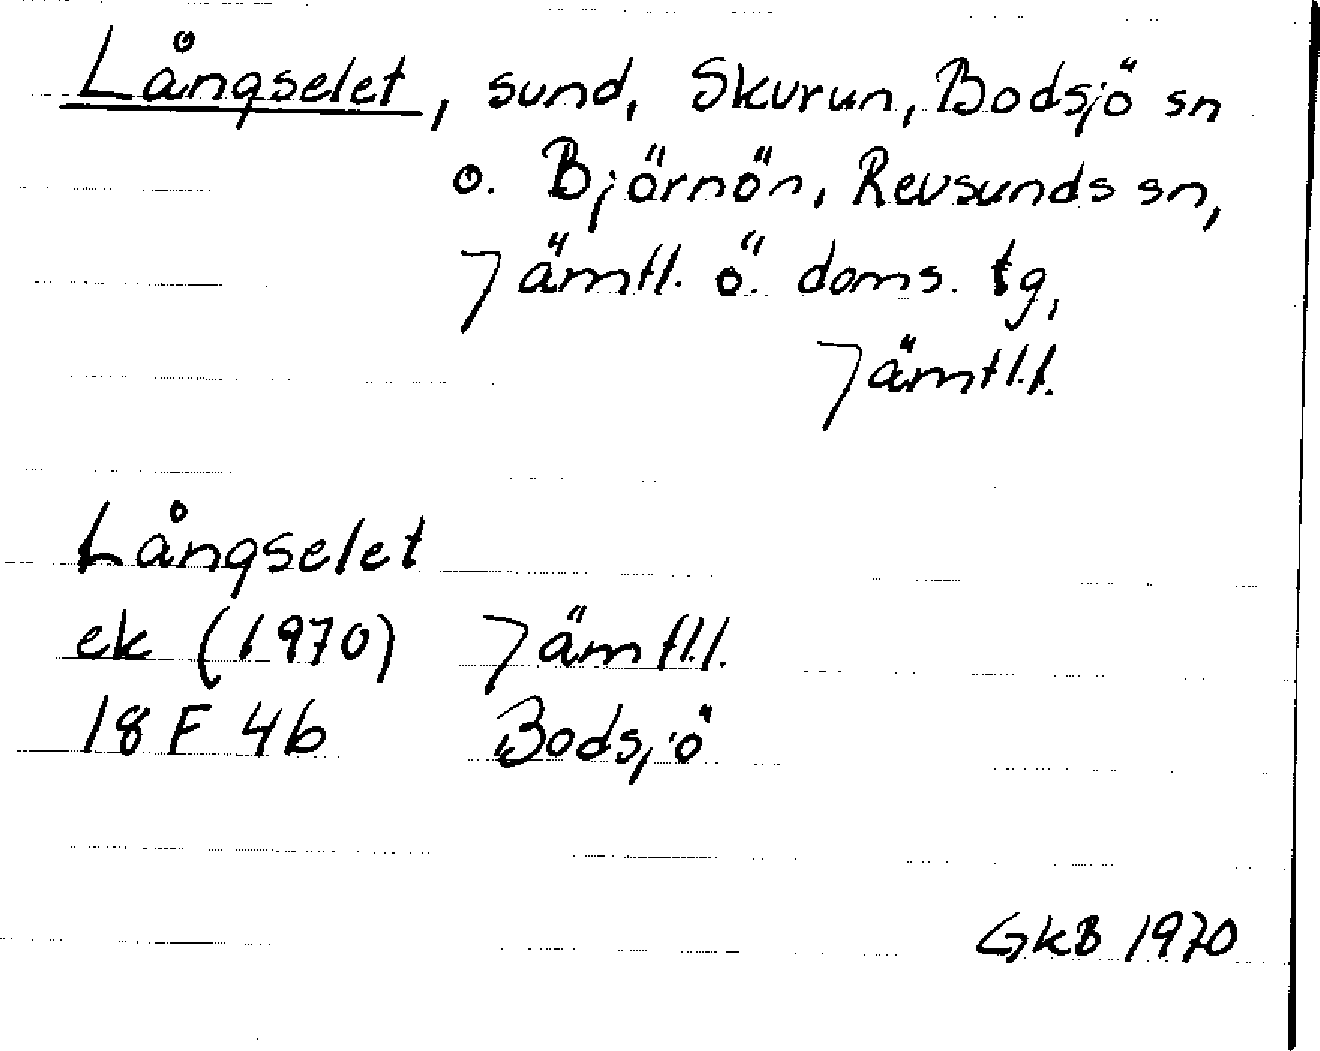 Långselet, sund, Skurun, Bodsjö sn
o. Björnön, Revsunds sn,
Jämtl. ö. doms. tg,
Jämtl.l.
Långselet
ek (1970) Jämtl.l.
18 F 4b Bodsjö
GkB 1970